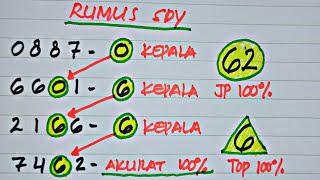 RUMUS SDY
0887 - 0 KEPALA 62
6601 - 6 KEPALA JP 100%
2166 - 6 KEPALA 6
7462 - AKURAT 100% TOP 100%